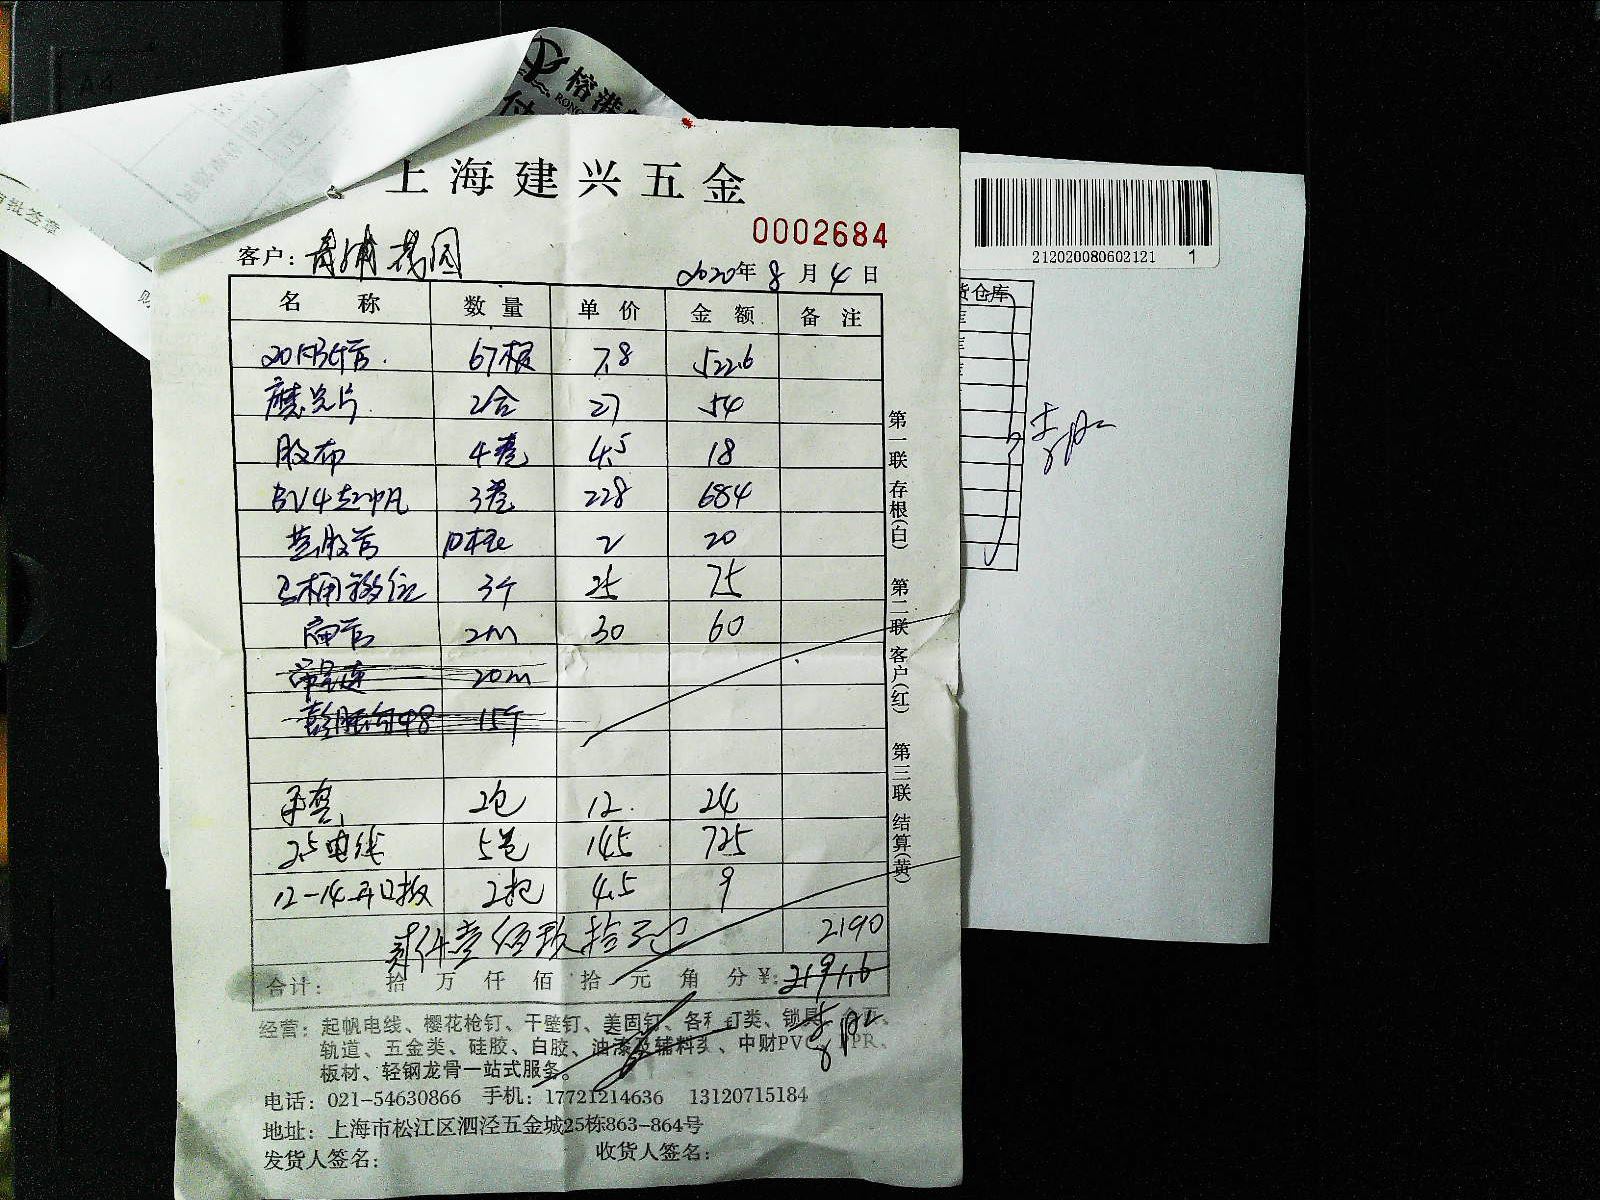 榕港
RONG
付
审批签章
上海建兴五金
0002684
212020080602121 1
客户: 青浦
2020年8月4日
货仓库
名称 数量 单价 金额 备注
20 67根 7.8 522.6
磨光片 2合 27 54
胶布 4卷 4.5 18
BV4起帆 3卷 228 684
黄腊管 10根 2 20
3个 25 75
扁管 2m 30 60
20m
48 15个
手套 2包 12 24
2.5电线 5卷 145 725
12-14开口板 2把 4.5 9
贰仟壹佰玖拾元 2190
合计: 拾 万 仟 佰 拾 元 角 分 ¥: 2191.6
第一联 存根(白) 第二联 客户(红) 第三联 结算(黄)
经营: 起帆电线、樱花枪钉、干壁钉、美固钉、各种钉类、锁具、
轨道、五金类、硅胶、白胶、油漆及辅料类、中财PVC、PPR、
板材、轻钢龙骨一站式服务。
电话: 021-54630866 手机: 17721214636 13120715184
地址: 上海市松江区泗泾五金城25栋863-864号
发货人签名: 收货人签名: